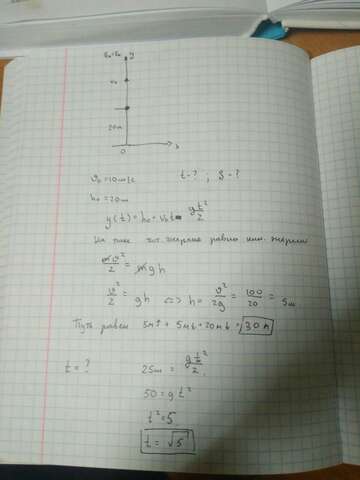 y
20м
0
x
v₀ = 10 м/с t - ? ; S - ?
h₀ = 20м
y(t) = h₀ + v₀t - gt²/2
На пике пот. энергия равна кин. энергии
mv²/2 = mgh
v²/2 = gh <=> h = v²/2g = 100/20 = 5м
Путь равен 5м↑ + 5м↓ + 20м↓ = 30м
t = ? 25м = gt²/2
50 = gt²
t² = 5
t = √5